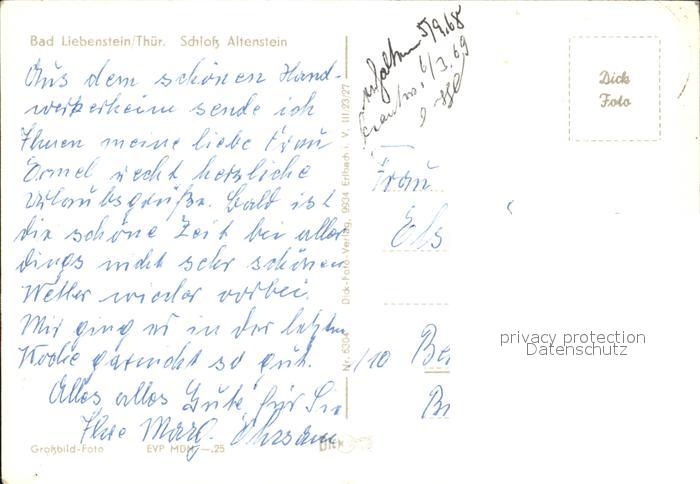 Bad Liebenstein/Thür. Schloß Altenstein
Aus dem schönen Hand-
werkerheim sende ich
Ihnen meine liebe Frau
recht herzliche
Urlaubsgrüße. Bald ist
die schöne Zeit bei aller-
dings nicht sehr schönen
Wetter wieder vorbei.
Mir ging es in der letzten
Woche garnicht so gut.
Alles alles Gute für Sie
Ihre Marg.
Großbild-Foto EVP MDN —.25
Nr. 6304 Dick-Foto-Verlag, 9934 Erlbach i. V. III/23/27
5/9.68
6/3.69
Dick
Foto
Frau
Els
/10 Be
privacy protection
Datenschutz